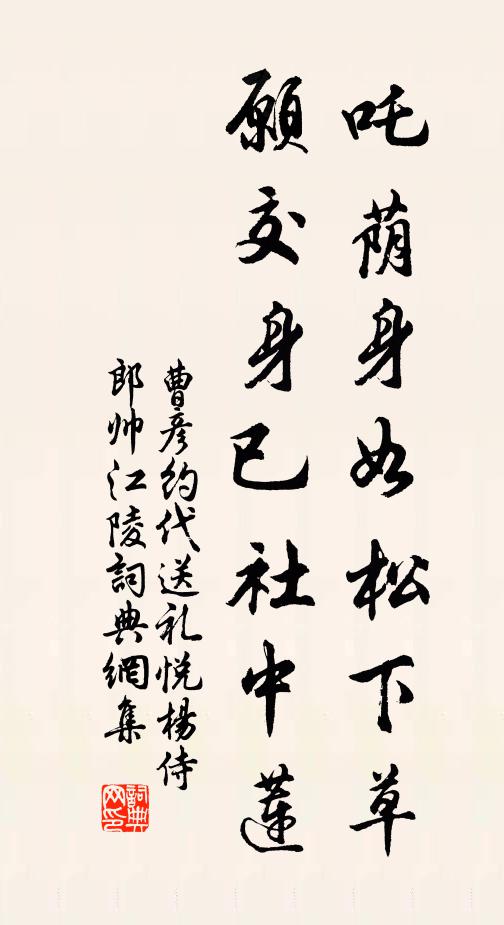 吒荫身如松下草
願交身已社中蓮
曹彦约代送礼悦楊侍
郎帅江陵詞典網集
詞典网印